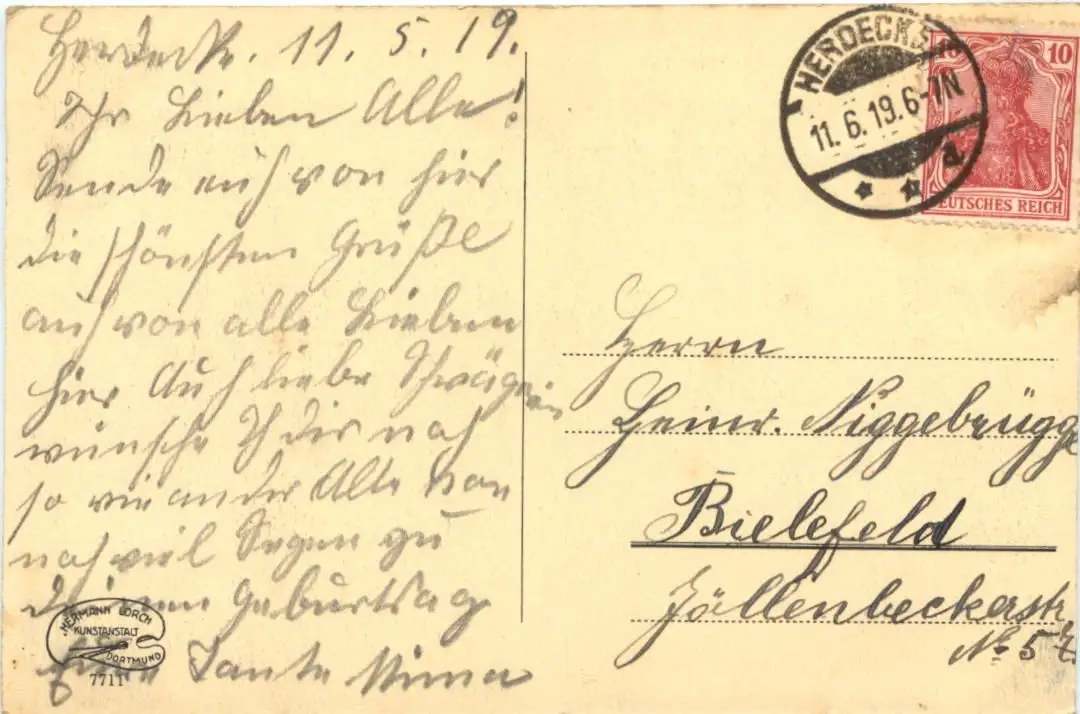 Herdecke. 11. 5. 19.
Ihr Lieben Alle!
Sende euch von hier
die schönsten Grüße
auch von alle Lieben
hier Auch liebe Schwägerin
wünsche Ich dir noch
so wie an der Alte
noch viel Segen zu
deinen Geburtsag
Eure Tante Minna
HERMANN LORCH
KUNSTANSTALT
DORTMUND
7711
HERDECKE
11. 6. 19. 6-7N
10
10
DEUTSCHES REICH
Herrn
Heinr. Niggebrügge
Bielefeld
Jöllenbeckerstr
No 57